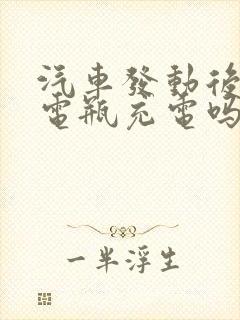 汽車發動後
電瓶充電嗎
一半浮生